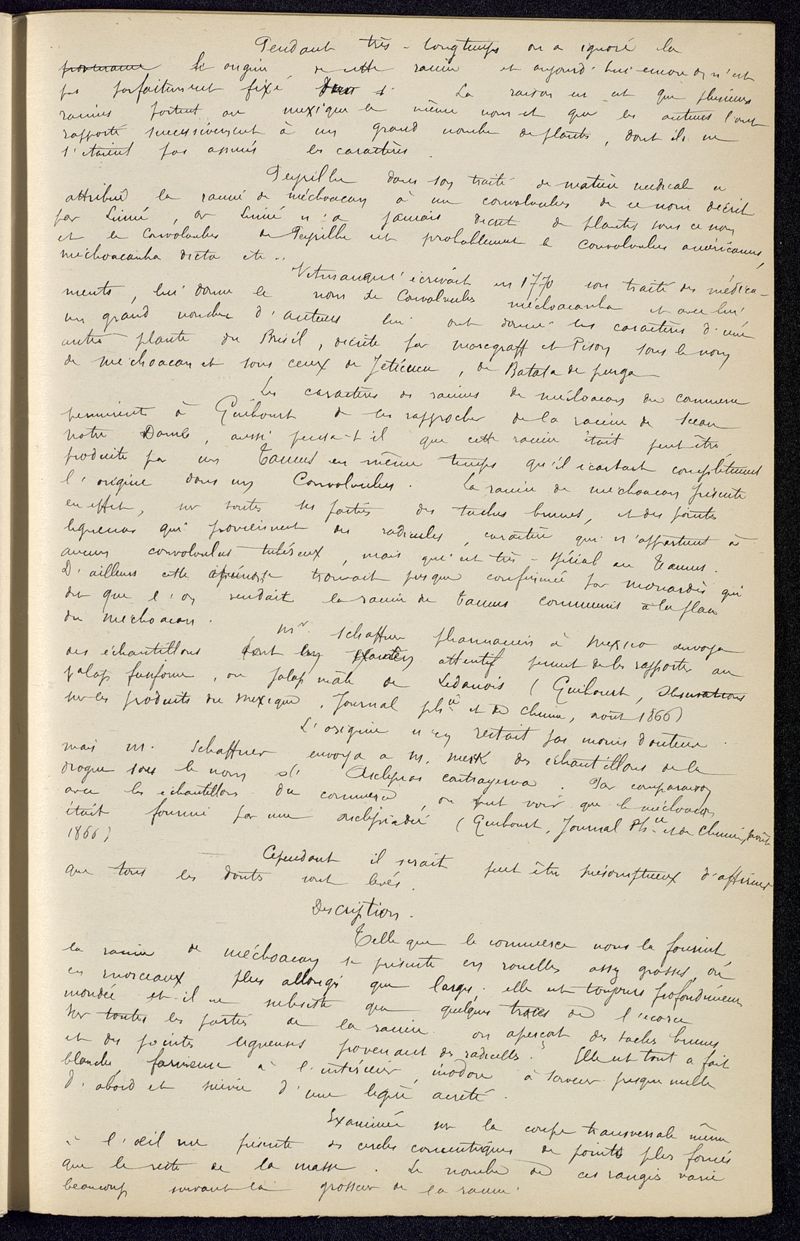 Pendant très-longtemps on a ignoré la
provenance et origine de cette racine et aujourd'hui encore on n'est
pas parfaitement fixé. La raison en est que plusieurs
racines portent au mexique le même nom et que les auteurs l'ont
rapporté successivement à un grand nombre de plantes, dont ils ne
s'étaient pas assurés les caractères.
Peyrilhe dans son traité de matière médicale a
attribué la racine de méchoacan à un convolvulus de ce nom décrit
par Linné, or Linné n'a jamais décrit de plantes sous ce nom
et le Convolvulus de Peyrilhe est probablement le convolvulus américanus,
mechoacanha dicta etc..
qui écrivait en 1770 son traité des médica-
ments, lui donne le nom de Convolvulus méchoacanha et avec lui
un grand nombre d'auteurs lui ont donné les caractères d'une
autre plante du Brésil, décrite par marcgraff et Pison sous le nom
de méchoacan et sous ceux de Jeticucu, de Batata de purga
Les caractères des racines de méchoacan du commerce
permirent à Guibourt de les rapprocher de la racine de sceau
notre Dame, aussi pensa-t-il que cette racine était peut être
produite par un Tamus en même temps qu'il écartait complètement
l'origine dans un Convolvulus. La racine de méchoacan présente
en effet, sur toutes ses parties des taches brunes, et des pointes
ligneuses qui proviennent des radicules, caractère qui n'appartient à
aucun convolvulus tubéreux, mais qui est très-spécial au Tamus.
D'ailleurs cette opinion se trouvait presque confirmée par monardès qui
dit que l'on vendait la racine de tamus communis à la place
du mechoacan.
Mr. Schaffner pharmacien à Mexico envoya
des échantillons dont un examen attentif permit de les rapporter au
jalap fusiforme, ou jalap mâle de Ledanois (Guibourt, observations
sur les produits du mexique, Journal phie et de chimie, août 1866)
L'origine n'en restait pas moins douteuse.
mais M. Schaffner envoya à M. des échantillons de la
drogue sous le nom d'Asclepias contrayerva. Par comparaison
avec les échantillons du commerce, on put voir que le méchoacan
était fourni par une asclépiadée (Guibourt, Journal Phie et de Chimie, août
1866)
Cependant il serait peut être présomptueux d'affirmer
que tous les doutes sont levés.
Description.
Telle que le commerce nous la fournit
la racine de méchoacan se présente en rouelles assez grosses, ou
en morceaux plus allongés que larges. elle est toujours profondément
mondée et il ne subsiste que quelques traces de l'écorce
sur toutes les parties de la racine on aperçoit des taches brunes
et des pointes ligneuses provenant des radicelles. Elle est tout a fait
blanche, farineuse à l'intérieur, inodore à saveur presque nulle
d'abord et suivie d'une légère acreté.
Examinée sur la coupe transversale même
à l'oeil nu présente des cercles concentriques de points plus foncés
que le reste de la masse. Le nombre de ces rangés varie
beaucoup suivant la grosseur de la racine.